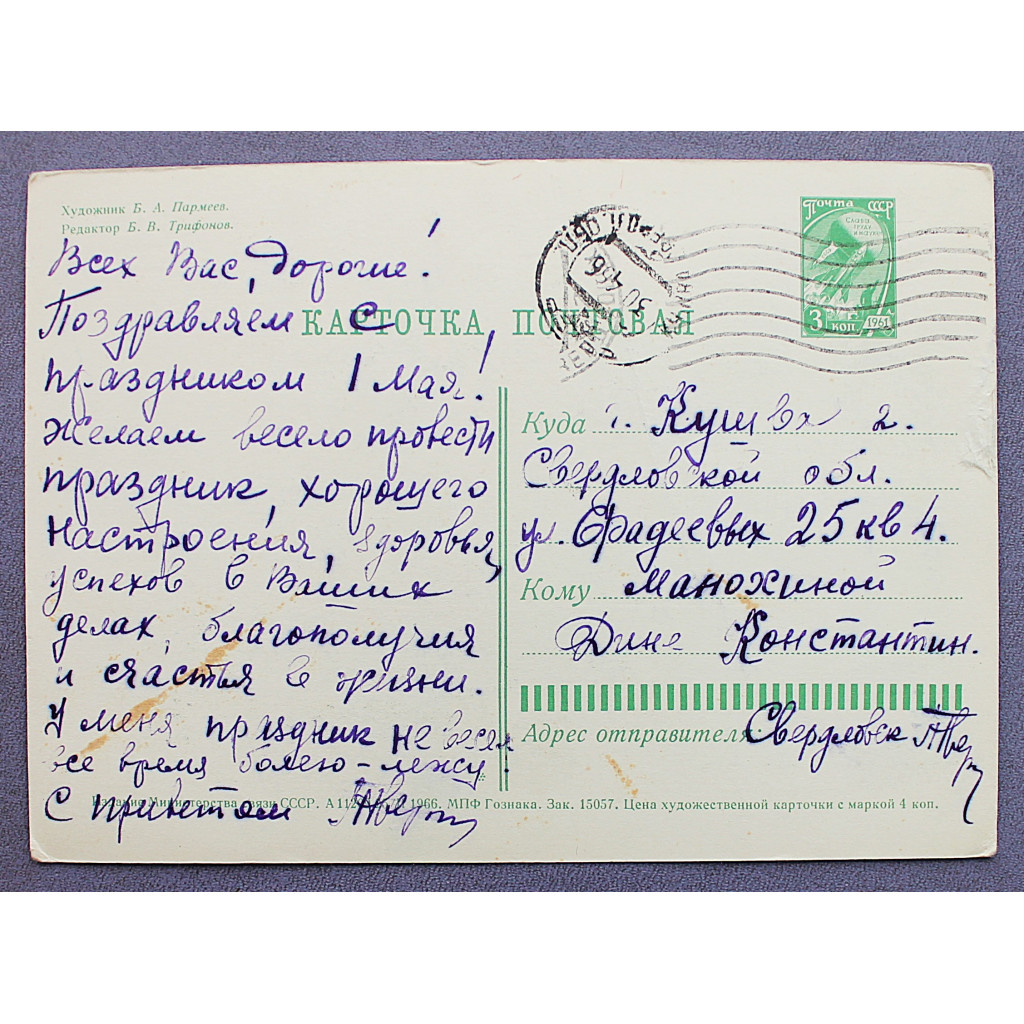 Художник Б. А. Пармеев.
Редактор Б. В. Трифонов.
Всех Вас, Дорогие!
Поздравляем с
праздником 1 Мая!
Желаем весело провести
праздник, хорошего
настроения, здоровья,
успехов в Ваших
делах, благополучия
и счастья в жизни.
У меня праздник не весел
все время болею-лежу.
С приветом
КАРТОЧКА ПОЧТОВАЯ
Почта СССР
Слава
труду
и науке
3 коп 1961
30 4 66
Куда г. Кушва 2.
Свердловской обл.
ул. Фадеевых 25 кв 4.
Кому Манохиной
Дине Константин.
Адрес отправителя Свердловск
Издание Министерства связи СССР. 1966. МПФ Гознака. Зак. 15057. Цена художественной карточки с маркой 4 коп.